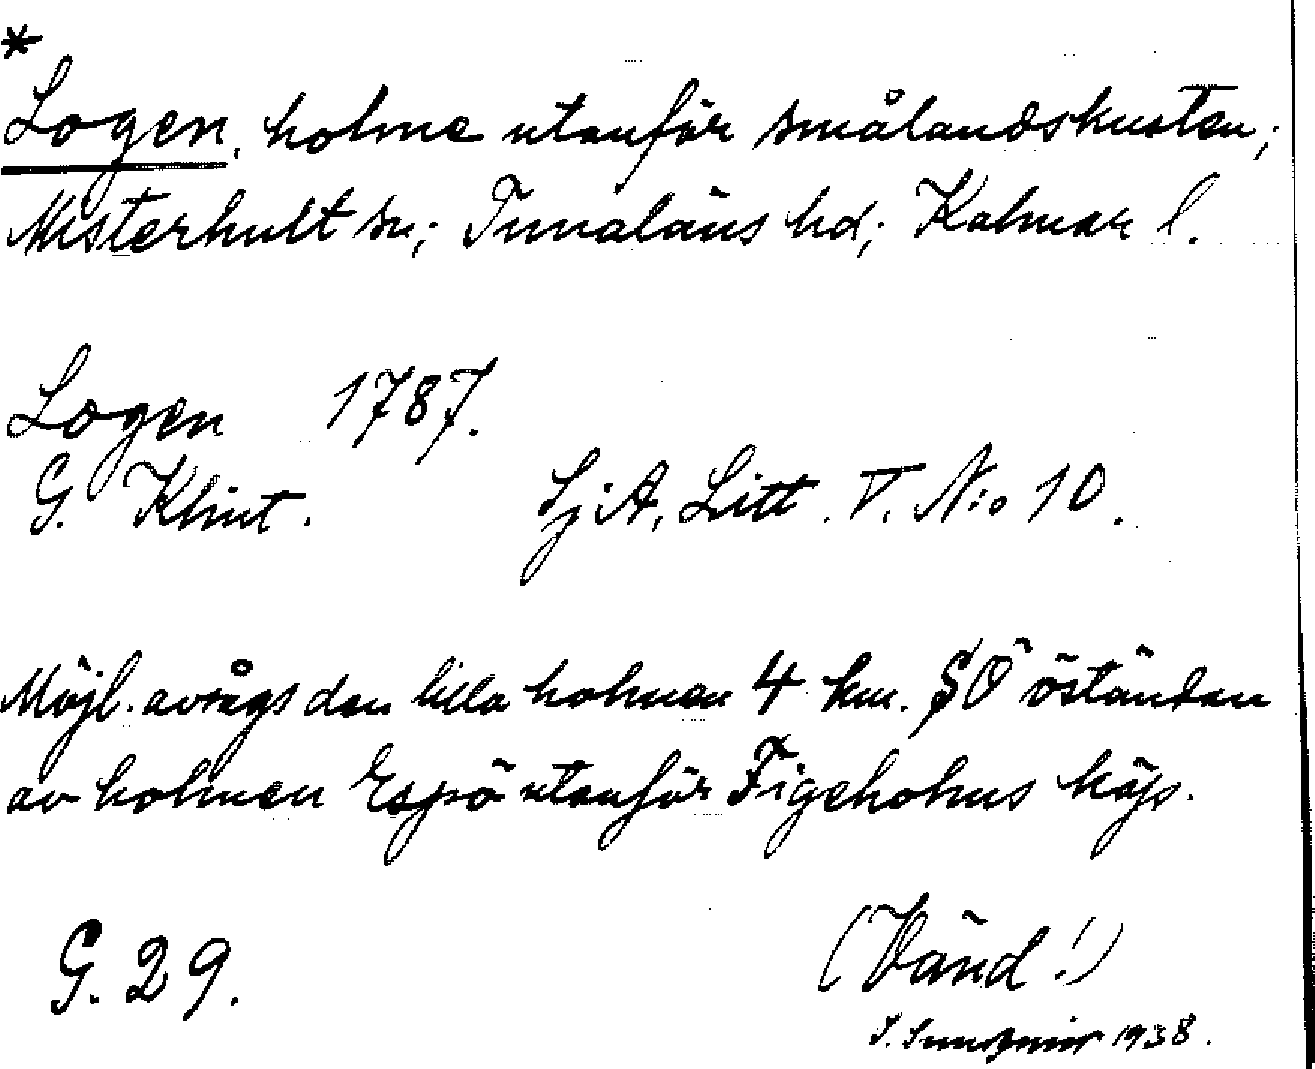 *
Logen, holme utanför smålandskusten;
Misterhult sn; Tunaläns hd; Kalmar l.
Logen 1787.
G. Klint. Sj.A, Litt. V. N:o 10.
Möjl. avsågs den lilla holmen 4 km. SÖ öständen
av holmen Espö utanför Figeholms köp.
G. 29.
(Vänd!)
1938.